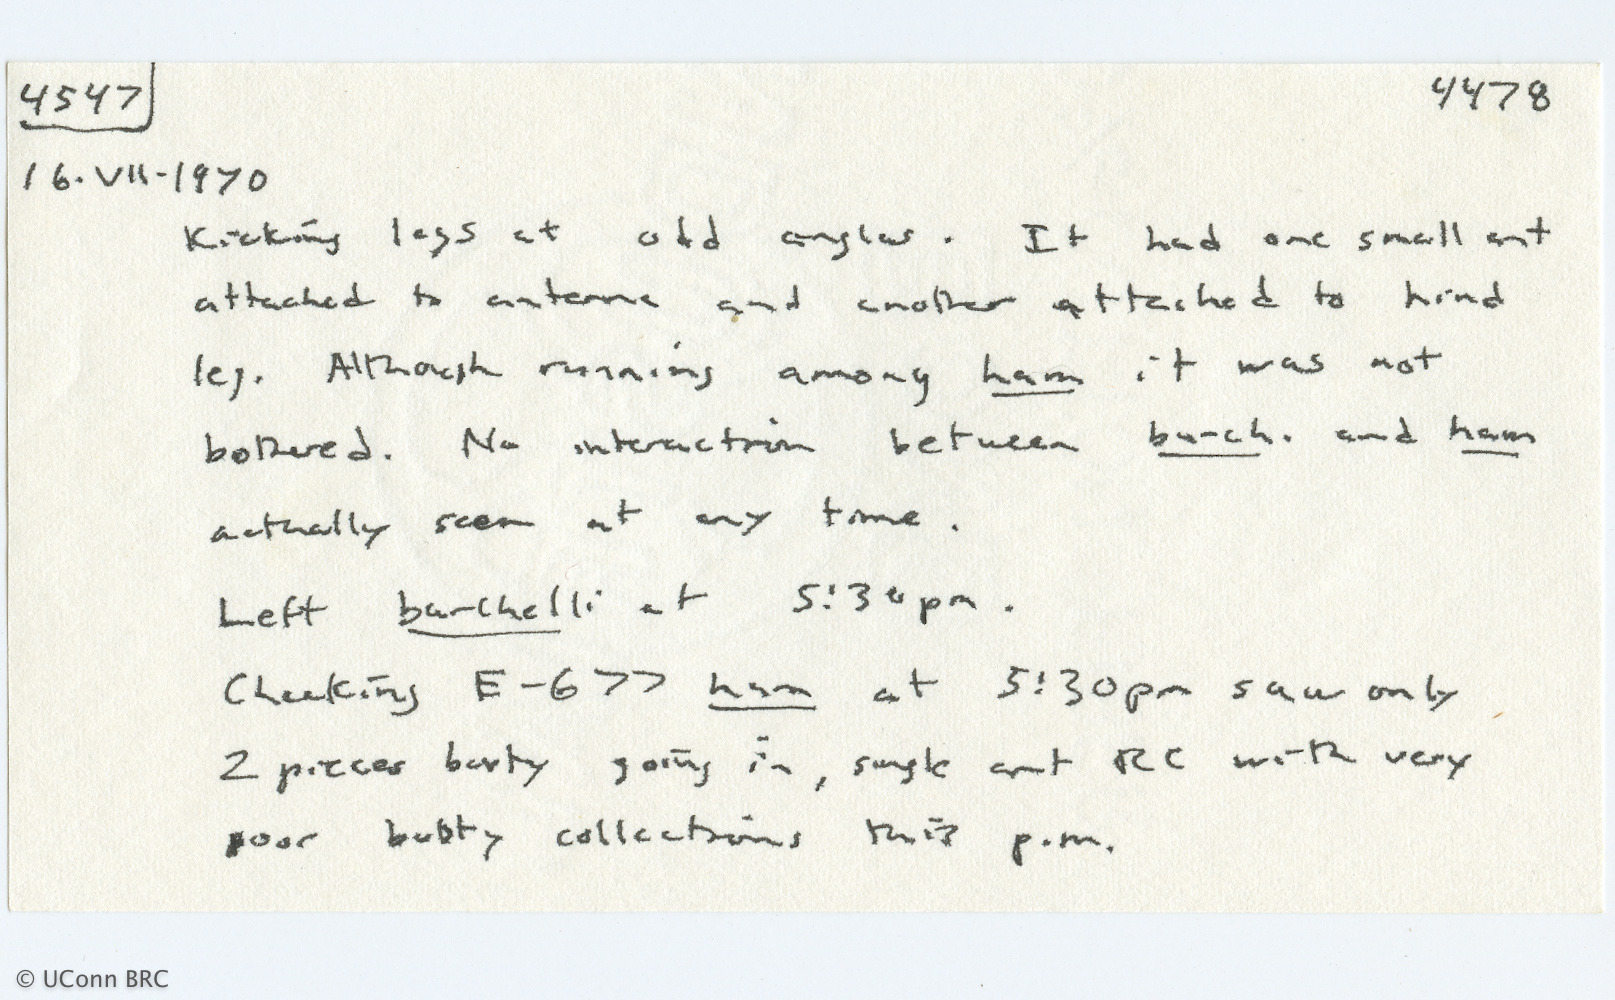 4547 4478
16.VII-1970
Kicking legs at odd angles. It had one small ant
attached to antenna and another attached to hind
leg. Although running among ham it was not
bothered. No interaction between burch. and ham
actually seen at any time.
Left burchelli at 5:30pm.
Checking E-677 ham at 5:30pm saw only
2 pieces booty going in, single ant RC with very
poor booty collections this p.m.
© UConn BRC